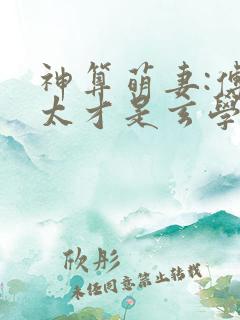 神算萌妻:傅
太才是玄學
欣彤
未经同意禁止转载